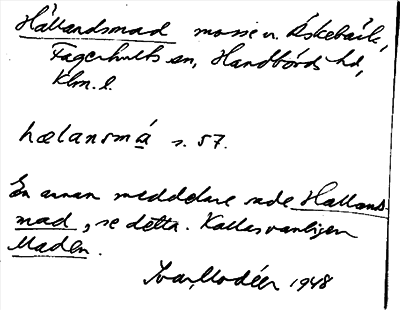 Hällandsmad mosse v. Äskebäck,
Fagerhults sn, Handbörds hd,
Klm. l.
hælansmá s. 57.
En annan meddelare sade Hallands-
mad, se detta. Kallas vanligen
Maden.
Ivar Modéer 1948